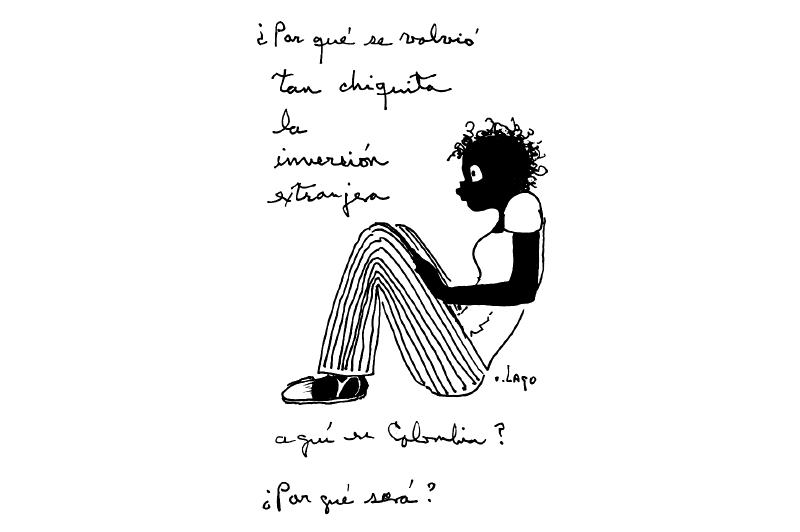 ¿Por qué se volvió
tan chiquita
la
inversión
extranjera
o.Lago
aquí en Colombia?
¿Por qué será?